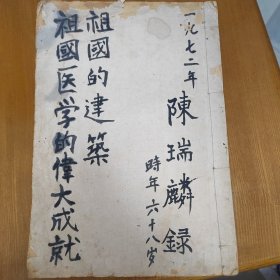 一九七二年
陳瑞麟录
時年六十八岁
祖國的建築
祖國医学的偉大成就